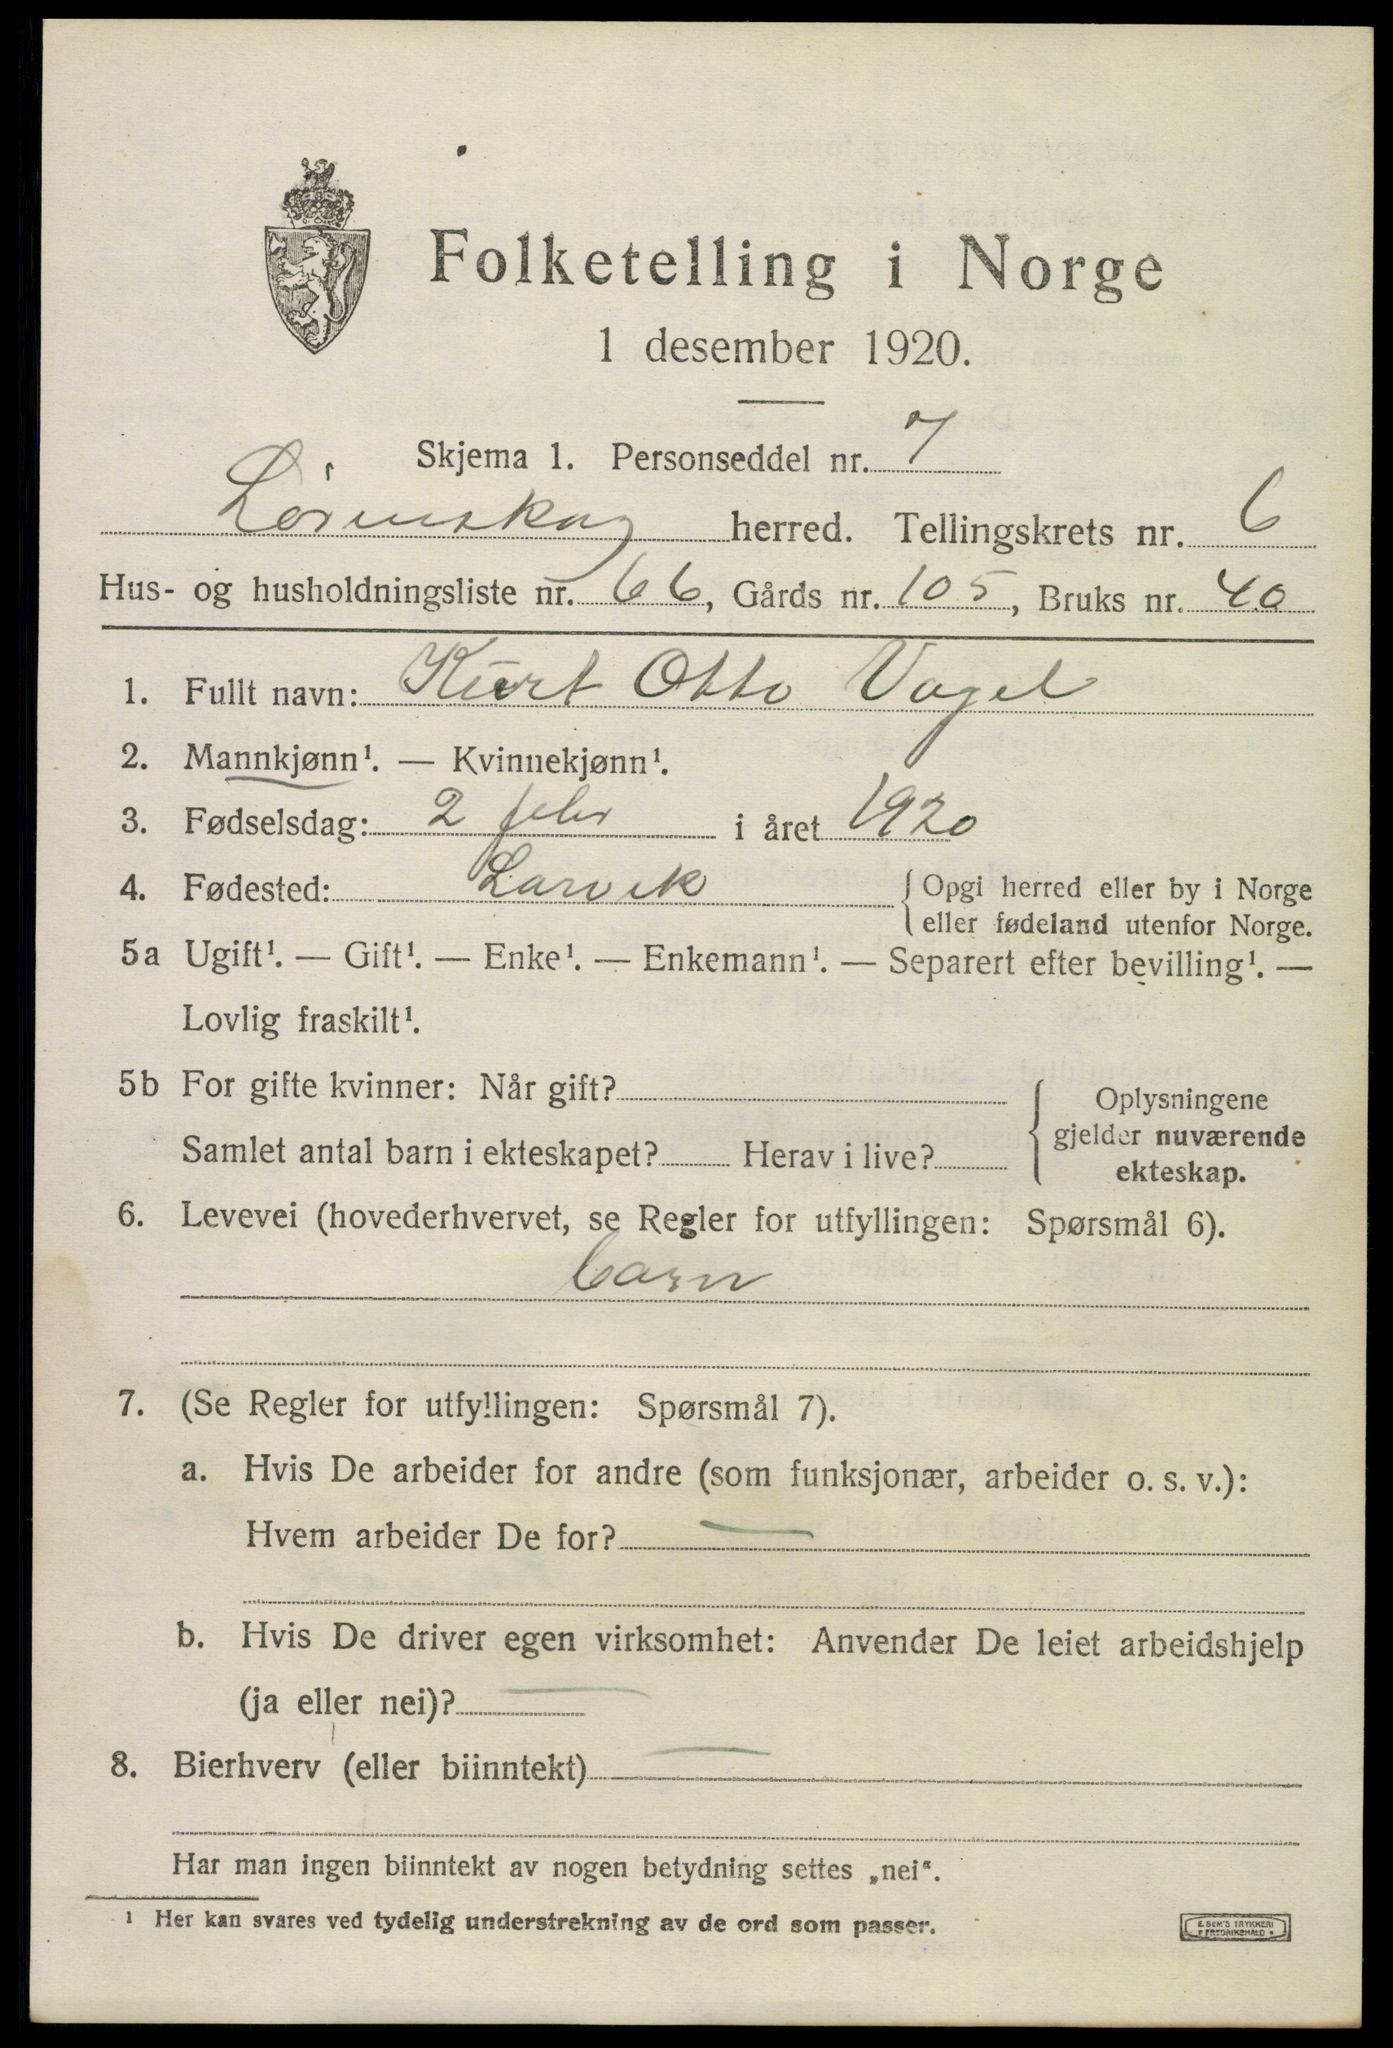 Folketelling i Norge
1 desember 1920.
Skjema 1. Personseddel nr. 7
Lørenskog herred. Tellingskrets nr. 6
Hus- og husholdningsliste nr. 66, Gårds nr. 105, Bruks nr. 40
1. Fullt navn: Kurt Otto Vogel
2. Mannkjønn¹. — Kvinnekjønn¹.
3. Fødselsdag: 2 febr i året 1920
4. Fødested: Larvik {Opgi herred eller by i Norge
eller fødeland utenfor Norge.
5a Ugift¹. — Gift¹. — Enke¹. — Enkemann¹. — Separert efter bevilling¹. —
Lovlig fraskilt¹.
5b For gifte kvinner: Når gift? Oplysningene
gjelder nuværende
Samlet antal barn i ekteskapet? Herav i live? ekteskap.
6. Levevei (hovederhvervet, se Regler for utfyllingen: Spørsmål 6).
barn
7. (Se Regler for utfyllingen: Spørsmål 7).
a. Hvis De arbeider for andre (som funksjonær, arbeider o. s. v.):
Hvem arbeider De for? —
b. Hvis De driver egen virksomhet: Anvender De leiet arbeidshjelp
(ja eller nei)? —
8. Bierhverv (eller biinntekt) —
Har man ingen biinntekt av nogen betydning settes „nei“.
¹ Her kan svares ved tydelig understrekning av de ord som passer.
E. SEM'S TRYKKERI
FREDRIKSHALD